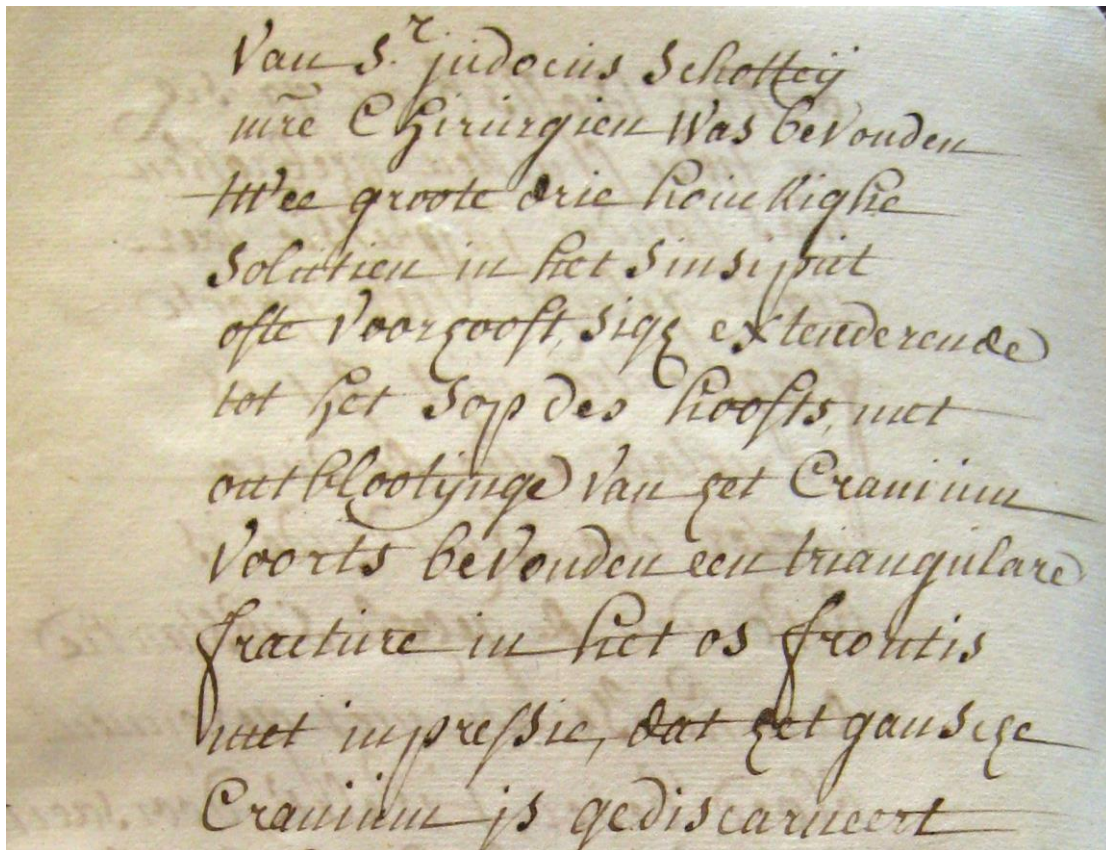 van S.r judocus Schotteij
mre Chirurgien was bevonden
twee groote drie hoinkighe
solutien in het sinsiput
ofte voorhooft, sigh extenderende
tot het sop des hoofts, met
ontblootijnge van het Cranium
voorts bevonden een triangulare
fracture in het os frontis
met inpressie, dat het gansche
Cranium js gediscarneert